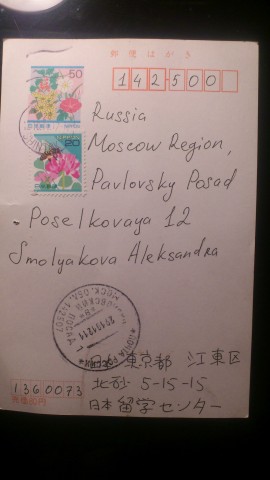 郵便はがき
50
日本郵便
NIPPON
20
日本郵便
142500
Russia
Moscow Region,
Pavlovsky Posad
Poselkovaya 12
Smolyakova Aleksandra
ПОЧТА РОССИИ
日本 東京都 江東区
北砂 5-15-15
日本留学センター
1360073